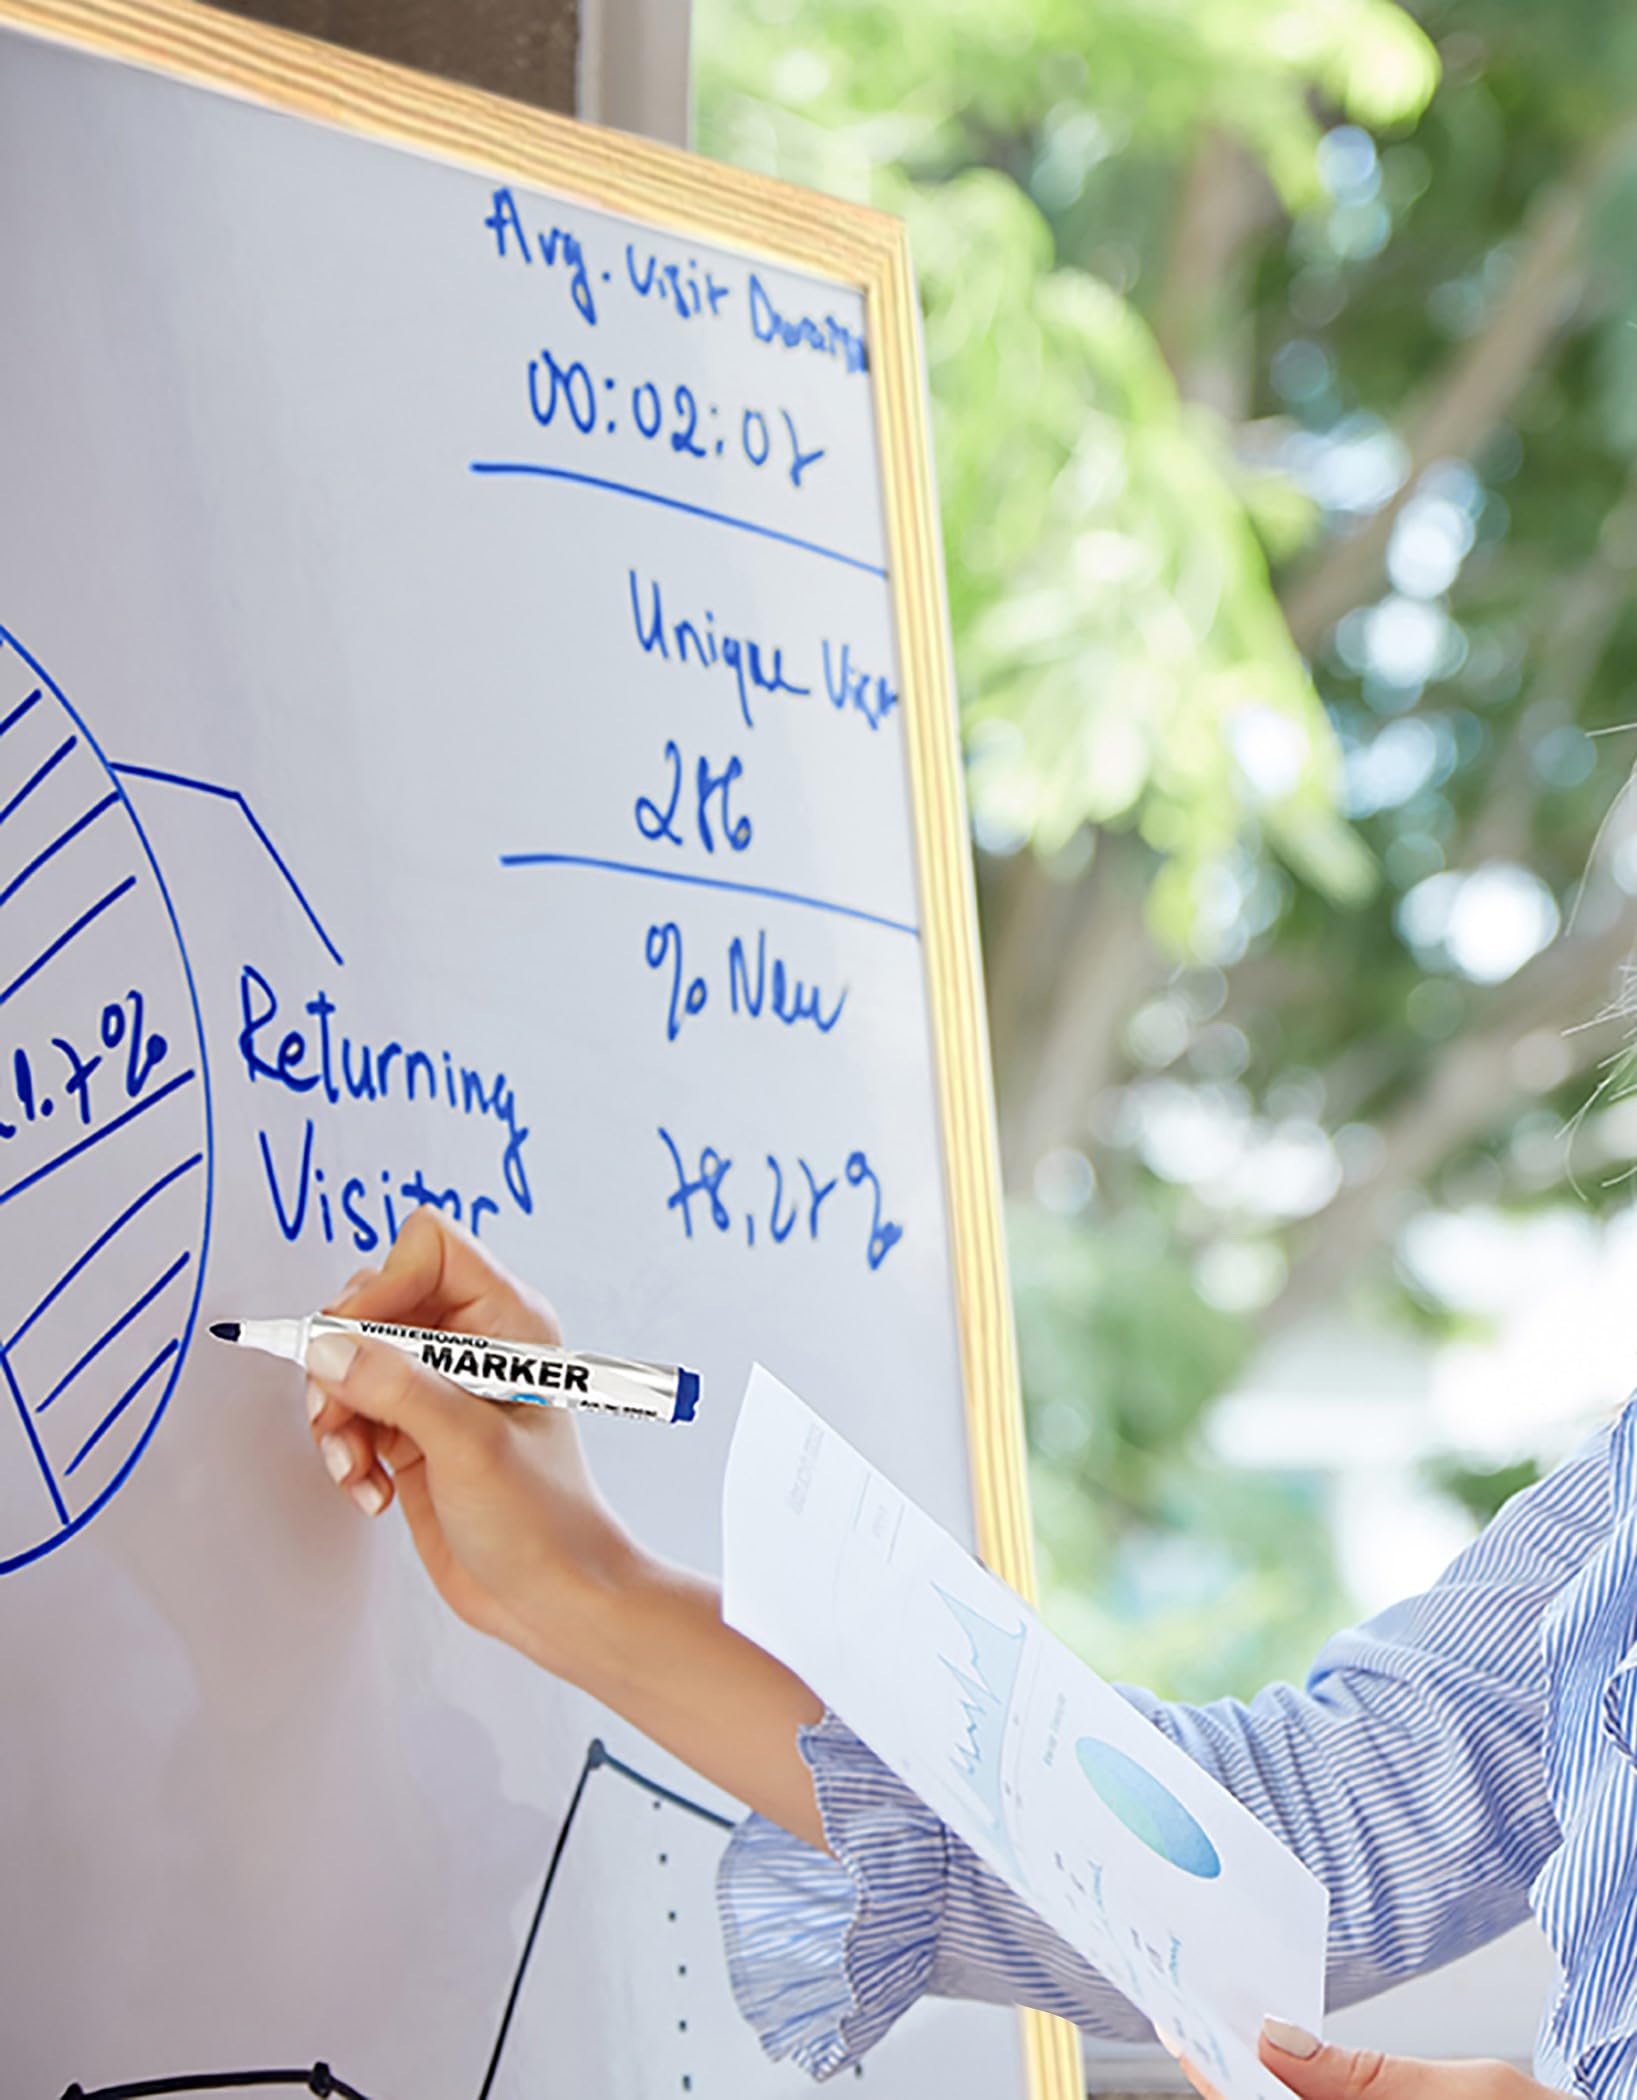 Avg. Visit Duration
00:02:07
Unique Visit
286
% New
78,27%
1.7%
Returning
Visitor
WHITEBOARD
MARKER